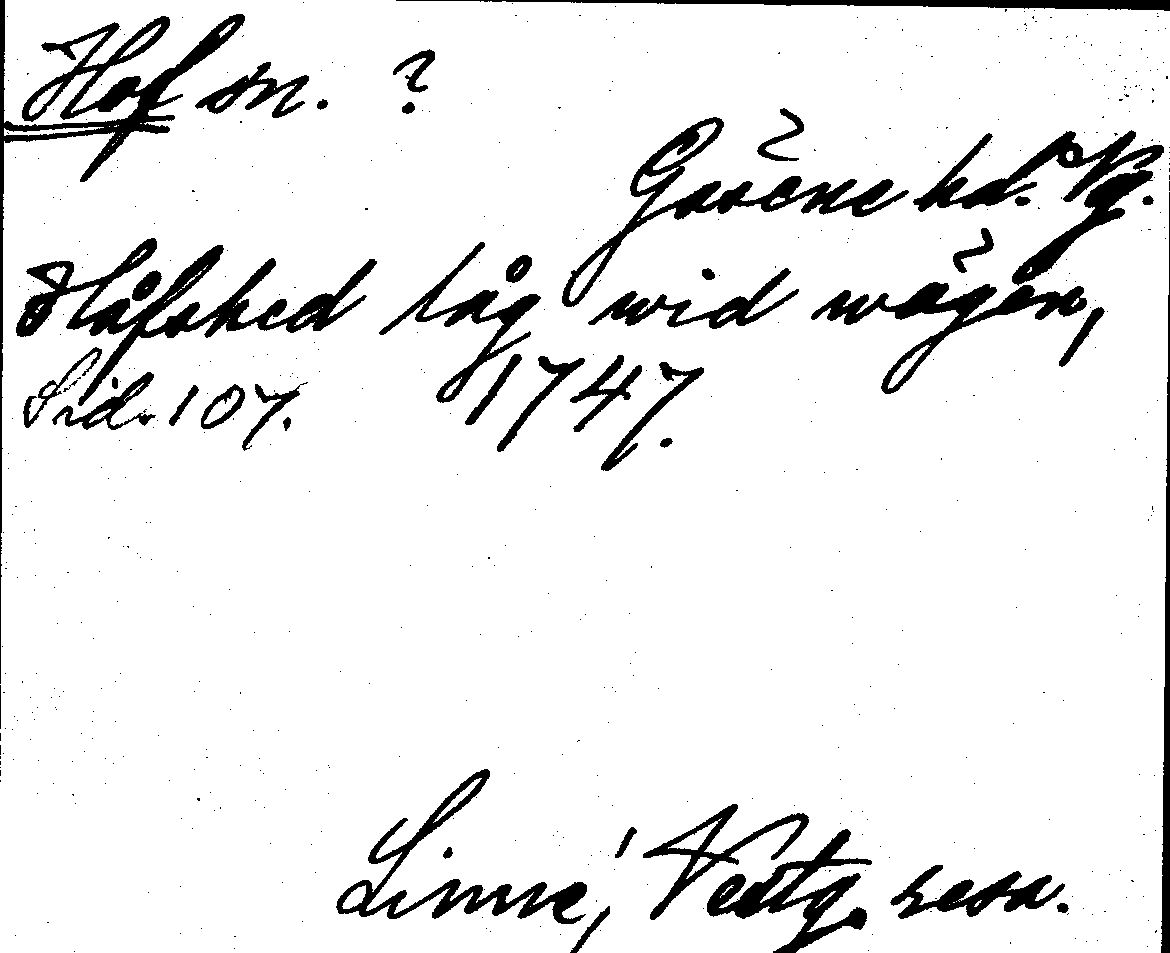 Hof sn. ?
Gäsene hd. Vg.
Håfshed låg wid wägen,
Sid. 107. 1747.
Linné, Västg. resa.